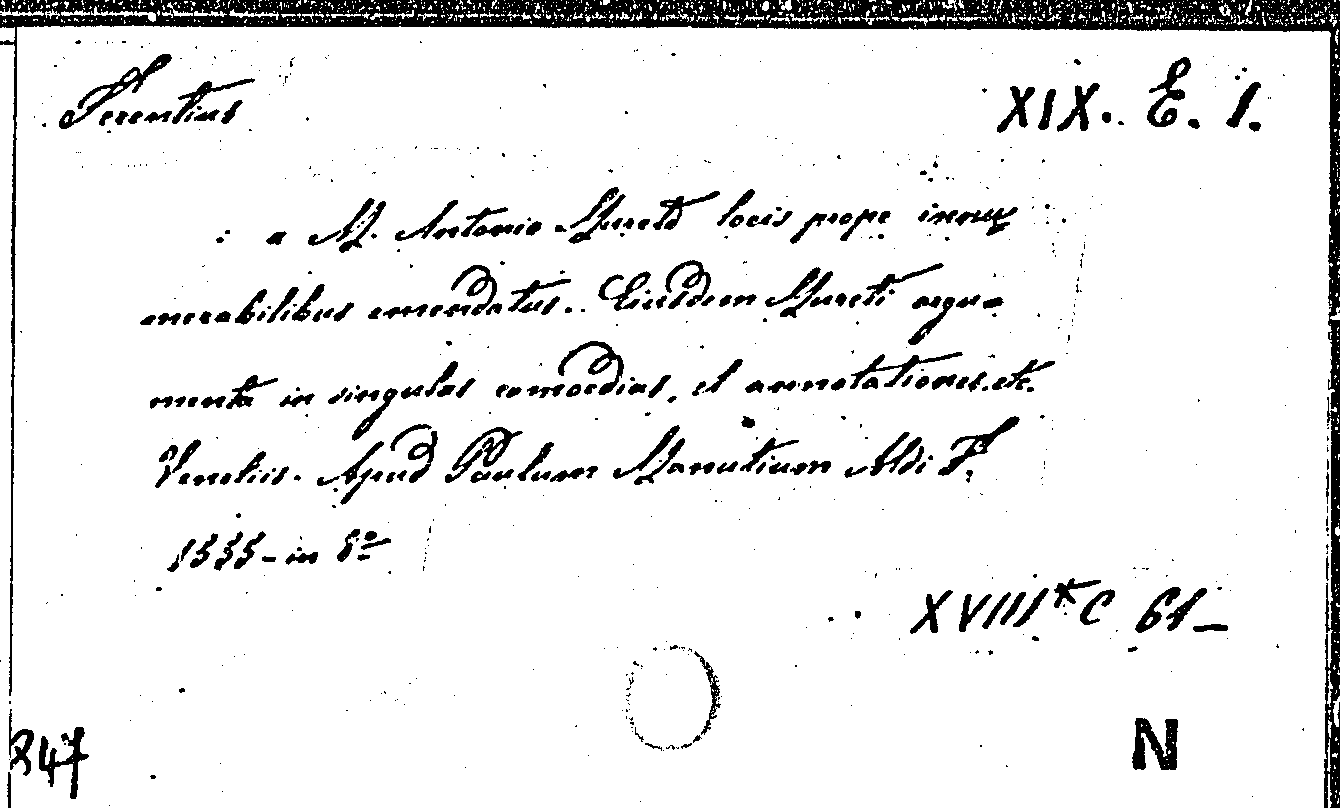 Terentius
XIX. E. 1.
: a M. Antonio Mureto locis prope innu
merabilibus emendatus. Eiusdem Mureti argu
menta in singulas comoedias, et annotationes. etc.
Venetiis. Apud Paulum Manutium Aldi F.
1555 - in 8º
XVIII* C 61 -
847
N